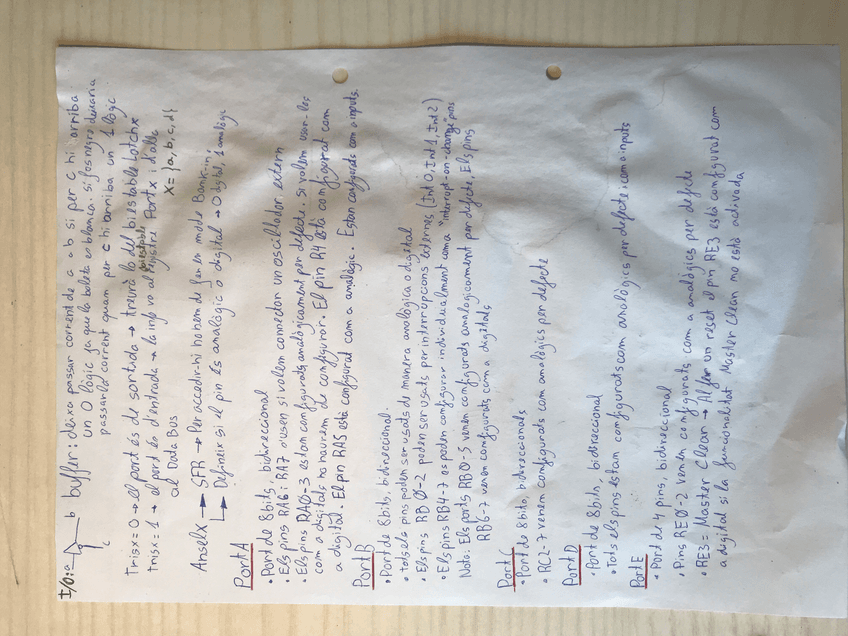 I/O: a b c buffer: deixa passar corrent de a a b si per c hi arriba
un 0 lògic ja que la boleta es blanca. si fos negra deixaria
passar la corrent quan per c hi arriba un 1 lògic.
Trisx = 0 → el port és de sortida → treurà lo del biestable Latchx
Trisx = 1 → el port és d'entrada → la info va al biestable registre Portx i d'allà
al Data Bus
x = {a, b, c, d}
Anselx → SFR → Per accedir-hi ho hem de fer en mode Bank-in,
↳ Defineix si el pin és analògic o digital → 0 digital, 1 analògic
Port A
• Port de 8 bits, bidireccional
• Els pins RA6 i RA7 s'usen si volem connectar un oscil·lador extern
• Els pins RA0-3 estan configurats analògicament per defecte. Si volem usar-los
com a digitals ho haurem de configurar. El pin R4 està configurat com
a digital. El pin RA5 està configurat com a analògic. Estan configurats com a inputs.
Port B
• Port de 8 bits, bidireccional.
• Tots els pins poden ser usats de manera analògica o digital
• Els pins RB0-2 poden ser usats per interrupcions externes (Int0, Int1, Int2)
• Els pins RB4-7 es poden configurar individualment com a "interrupt-on-change" pins
Nota: Els ports RB0-5 venen configurats analogicament per defecte. Els pins
RB6-7 venen configurats com a digitals
Port C
• Port de 8 bits, bidireccionals
• RC2-7 venem configurats com analògics per defecte
Port D
• Port de 8 bits, bidireccional
• Tots els pins estan configurats com analògics per defecte i com a inputs
Port E
• Port de 4 pins, bidireccional
• Pins RE0-2 venen configurats com a analògics per defecte
• RE3 = Master Clean → Al fer un reset el pin RE3 està configurat com
a digital si la funcionalitat Master Clean no està activada